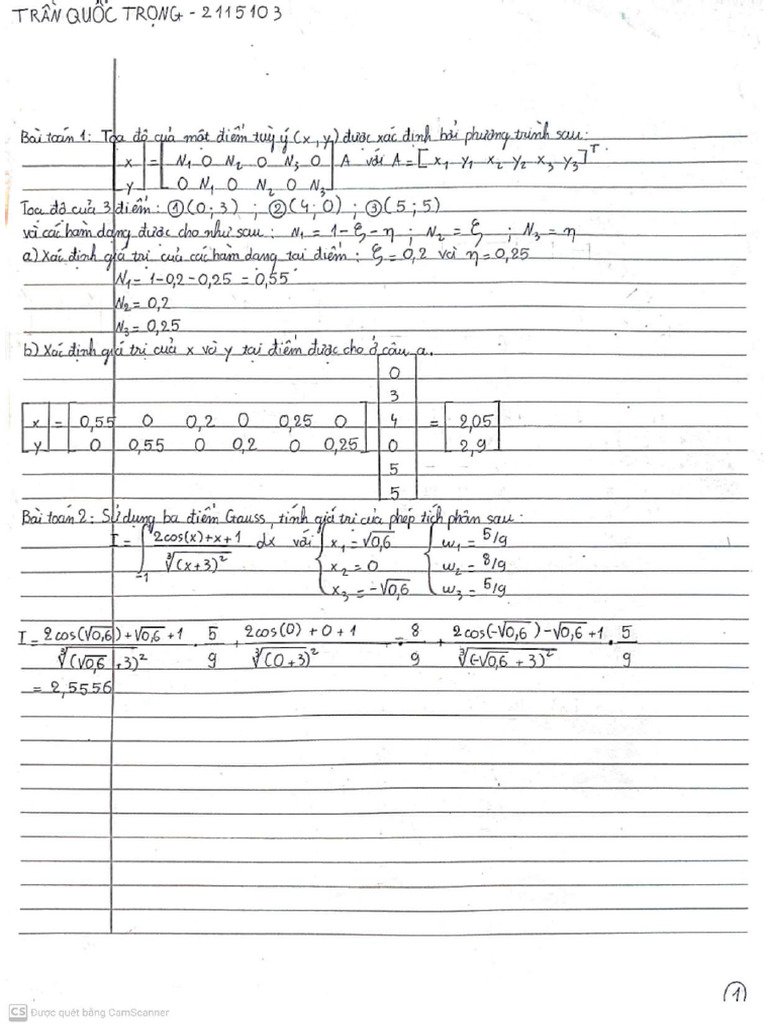 TRẦN QUỐC TRỌNG - 2115103
Bài toán 1: Tọa độ của một điểm tuỳ ý (x, y) được xác định bởi phương trình sau:
[x y] = [N₁ 0 N₂ 0 N₃ 0 A với A = [x₁ y₁ x₂ y₂ x₃ y₃]ᵀ.
0 N₁ 0 N₂ 0 N₃]
Tọa độ của 3 điểm: ①(0;3) ; ②(4;0) ; ③(5;5)
và các hàm dạng được cho như sau: N₁ = 1-ξ-η ; N₂ = ξ ; N₃ = η
a) Xác định giá trị của các hàm dạng tại điểm: ξ=0,2 và η=0,25
N₁ = 1-0,2-0,25 = 0,55
N₂ = 0,2
N₃ = 0,25
b) Xác định giá trị của x và y tại điểm được cho ở câu a.
[x y] = [0,55 0 0,2 0 0,25 0
0 0,55 0 0,2 0 0,25] [0 3 4 0 5 5] = [2,05 2,9]
Bài toán 2: Sử dụng ba điểm Gauss, tính giá trị của phép tích phân sau:
I = ∫₋₁ (2cos(x)+x+1)/∛(x+3)² dx với { x₁ = √0,6 { w₁ = 5/9
x₂ = 0 w₂ = 8/9
x₃ = -√0,6 w₃ = 5/9
I = (2cos(√0,6)+√0,6+1)/∛(√0,6+3)² · 5/9 + (2cos(0)+0+1)/∛(0+3)² · 8/9 + (2cos(-√0,6)-√0,6+1)/∛(-√0,6+3)² · 5/9
= 2,5556
①
CS Được quét bằng CamScanner